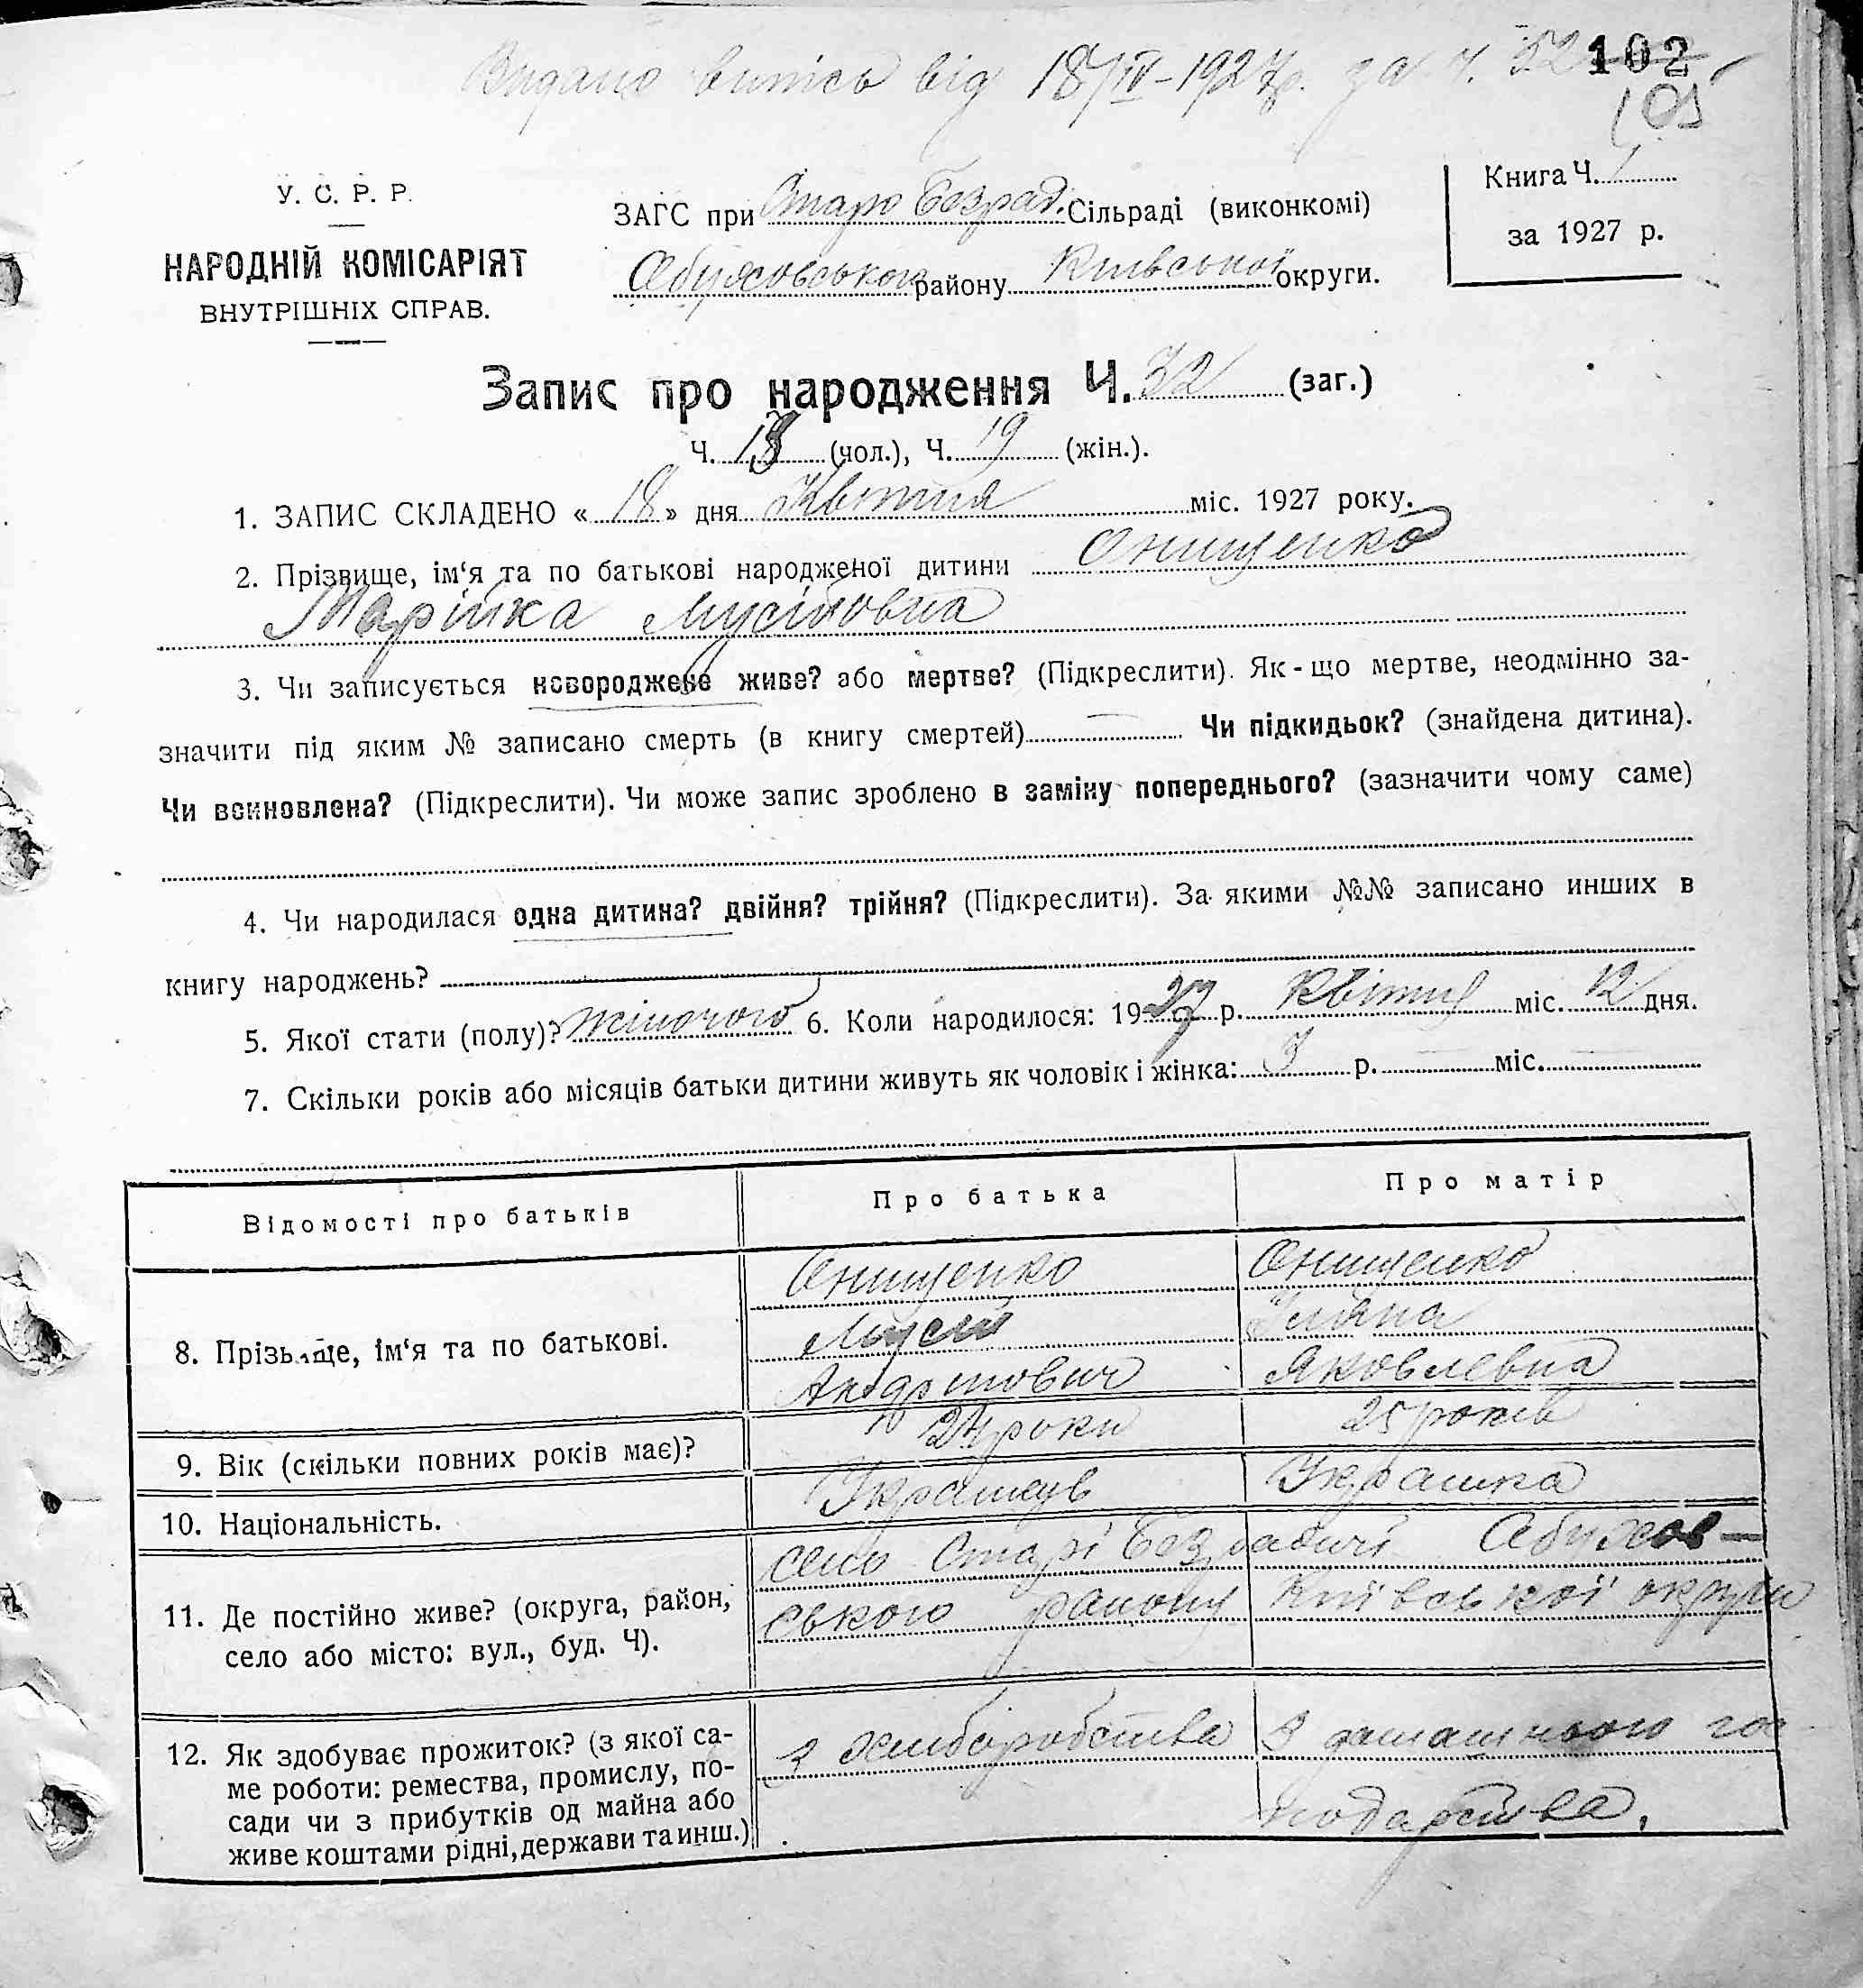 Видано витись від 18/IV-1927р. за ч. 32
102
101
У. С. Р. Р.
НАРОДНІЙ КОМІСАРІЯТ
ВНУТРІШНІХ СПРАВ.
ЗАГС при Старо Безрад. Сільраді (виконкомі)
Обуховського району Київської округи.
Книга Ч. 1
за 1927 р.
Запис про народження Ч. 32 (заг.)
Ч. 13 (чол.), Ч. 19 (жін.).
1. ЗАПИС СКЛАДЕНО « 18 » дня Квітня міс. 1927 року.
2. Прізвище, ім‘я та по батькові народженої дитини Онищенко
Марійка Мусіївовна
3. Чи записується новороджене живе? або мертве? (Підкреслити). Як-що мертве, неодмінно за-
значити під яким № записано смерть (в книгу смертей) Чи підкидьок? (знайдена дитина).
Чи всиновлена? (Підкреслити). Чи може запис зроблено в заміну попереднього? (зазначити чому саме)
4. Чи народилася одна дитина? двійня? трійня? (Підкреслити). За якими №№ записано инших в
книгу народжень?
5. Якої стати (полу)? жіночого 6. Коли народилося: 1927 р. Квітня міс. 12 дня.
7. Скільки років або місяців батьки дитини живуть як чоловік і жінка: 3 р. міс.
Відомості про батьків Про батька Про матір
8. Прізвище, ім‘я та по батькові.
Онищенко Онищенко
Мусій Уляна
Андріиович Яковлевна
9. Вік (скільки повних років має)? 24 роки 25 років
10. Національність. Українець Українка
11. Де постійно живе? (округа, район,
село або місто: вул., буд. Ч).
село Старі Безрадичі Обухов-
ського району Київської округи
12. Як здобуває прожиток? (з якої са-
ме роботи: ремества, промислу, по-
сади чи з прибутків од майна або
живе коштами рідні, держави та инш.)
з хліборобства З домашнього гос
подарства.